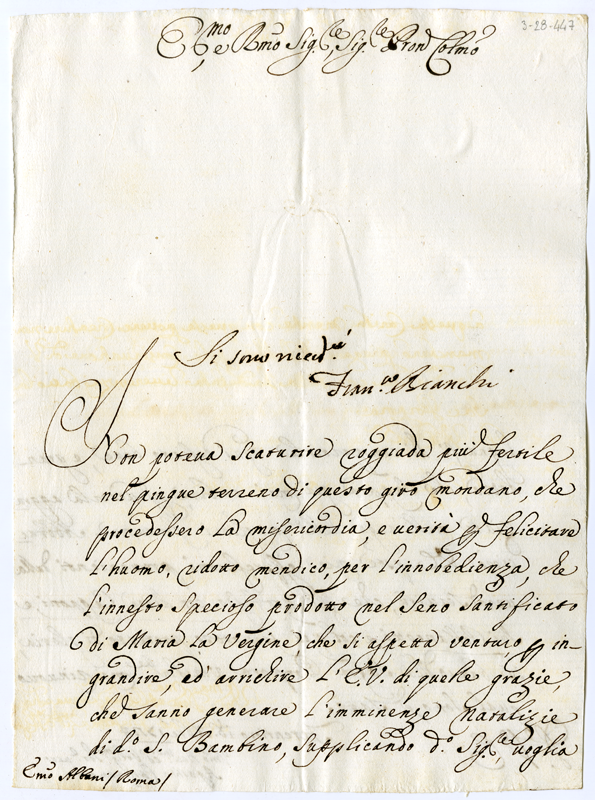 3-28-447
Emo e Rmo Sig.re Sig.re Pron Colmo
Si sono
Fran.co Bianchi
Non poteva scaturire roggiada più fertile
nel pingue terreno di questo giro mondano, che
procedessero la misericordia, e verità p felicitare
l'huomo, ridotto mendico, per l'innobedienza, che
l'innesto specioso prodotto nel seno santificato
di Maria la Vergine che si aspetta venturo p in-
grandire, ed' arrichire L'E.V. di quelle grazie,
che sanno generare l'imminenze Natalizie
di d.o S. Bambino, supplicando d.o Sig.re, voglia
Emo Albani /Roma/